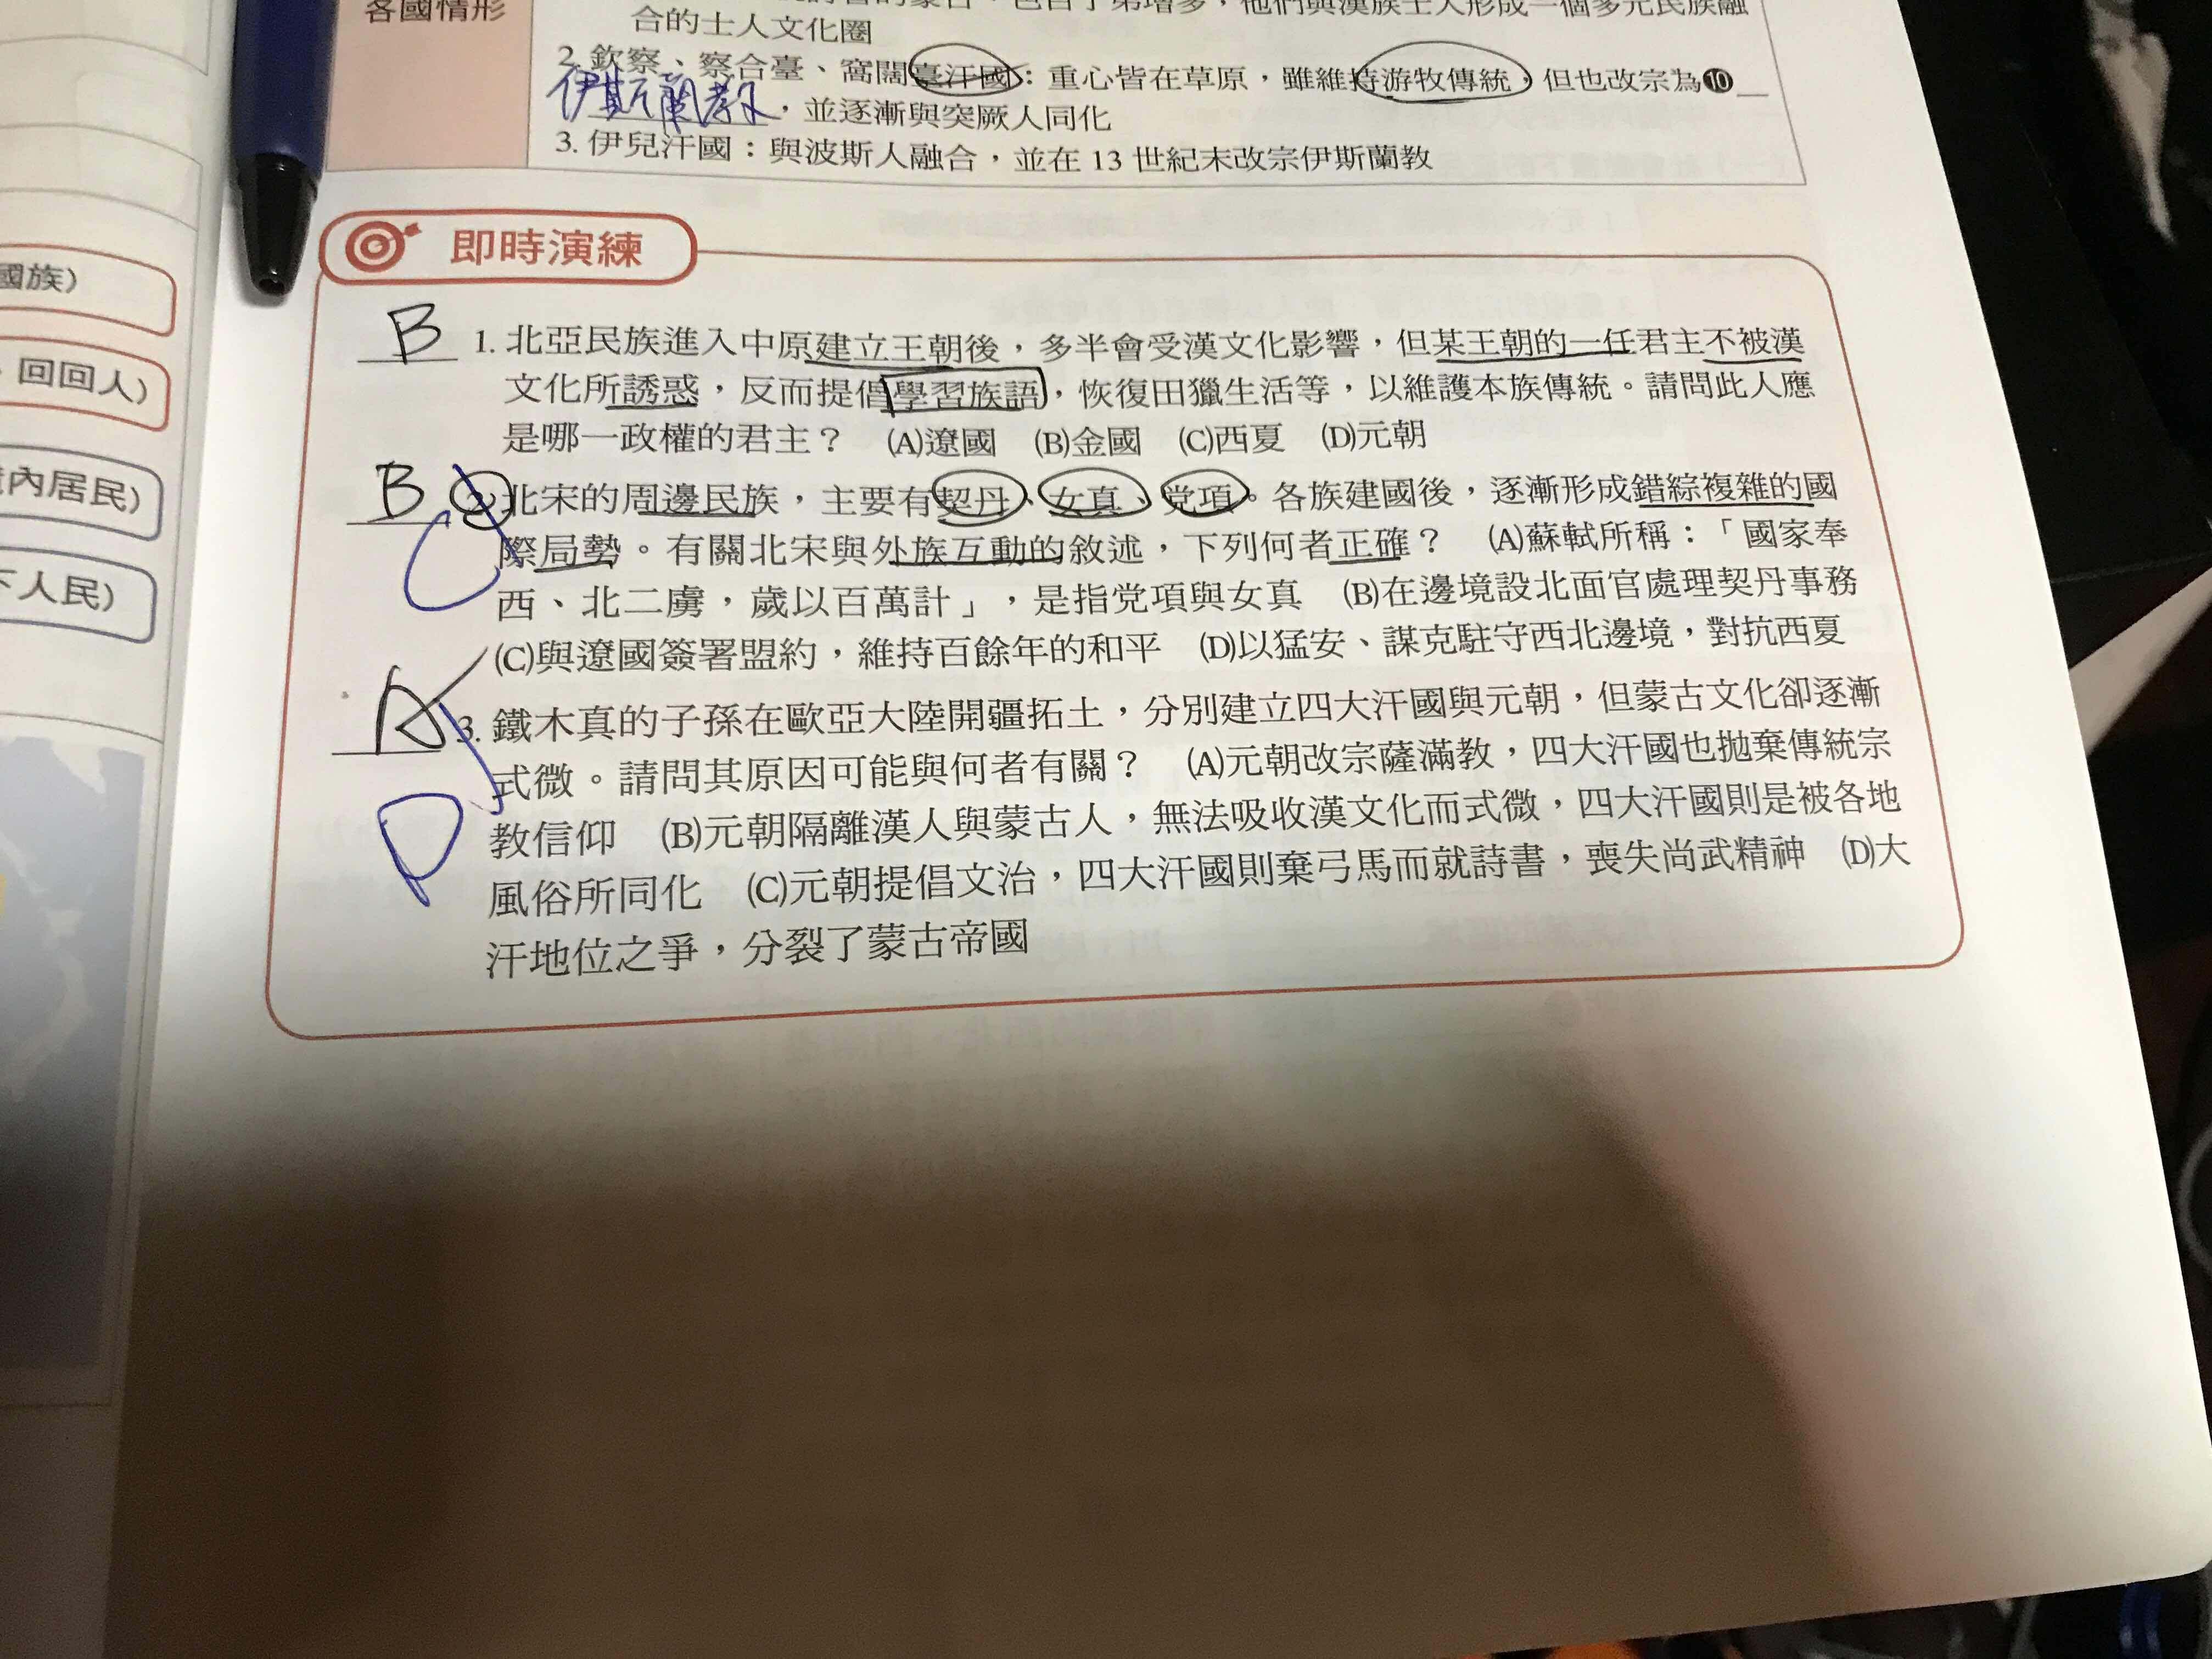 各國情形
他們與漢族士人形成一個多元民族融
合的士人文化圈
2. 欽察、察合臺、窩闊臺汗國：重心皆在草原，雖維持游牧傳統，但也改宗為❿
伊斯蘭教，並逐漸與突厥人同化
3. 伊兒汗國：與波斯人融合，並在 13 世紀末改宗伊斯蘭教
國族）
回回人）
內居民）
下人民）
即時演練
B 1. 北亞民族進入中原建立王朝後，多半會受漢文化影響，但某王朝的一任君主不被漢
文化所誘惑，反而提倡學習族語，恢復田獵生活等，以維護本族傳統。請問此人應
是哪一政權的君主？ (A)遼國 (B)金國 (C)西夏 (D)元朝
B 2. 北宋的周邊民族，主要有契丹、女真、党項。各族建國後，逐漸形成錯綜複雜的國
C 際局勢。有關北宋與外族互動的敘述，下列何者正確？ (A)蘇軾所稱：「國家奉
西、北二虜，歲以百萬計」，是指党項與女真 (B)在邊境設北面官處理契丹事務
(C)與遼國簽署盟約，維持百餘年的和平 (D)以猛安、謀克駐守西北邊境，對抗西夏
A 3. 鐵木真的子孫在歐亞大陸開疆拓土，分別建立四大汗國與元朝，但蒙古文化卻逐漸
式微。請問其原因可能與何者有關？ (A)元朝改宗薩滿教，四大汗國也拋棄傳統宗
D 教信仰 (B)元朝隔離漢人與蒙古人，無法吸收漢文化而式微，四大汗國則是被各地
風俗所同化 (C)元朝提倡文治，四大汗國則棄弓馬而就詩書，喪失尚武精神 (D)大
汗地位之爭，分裂了蒙古帝國